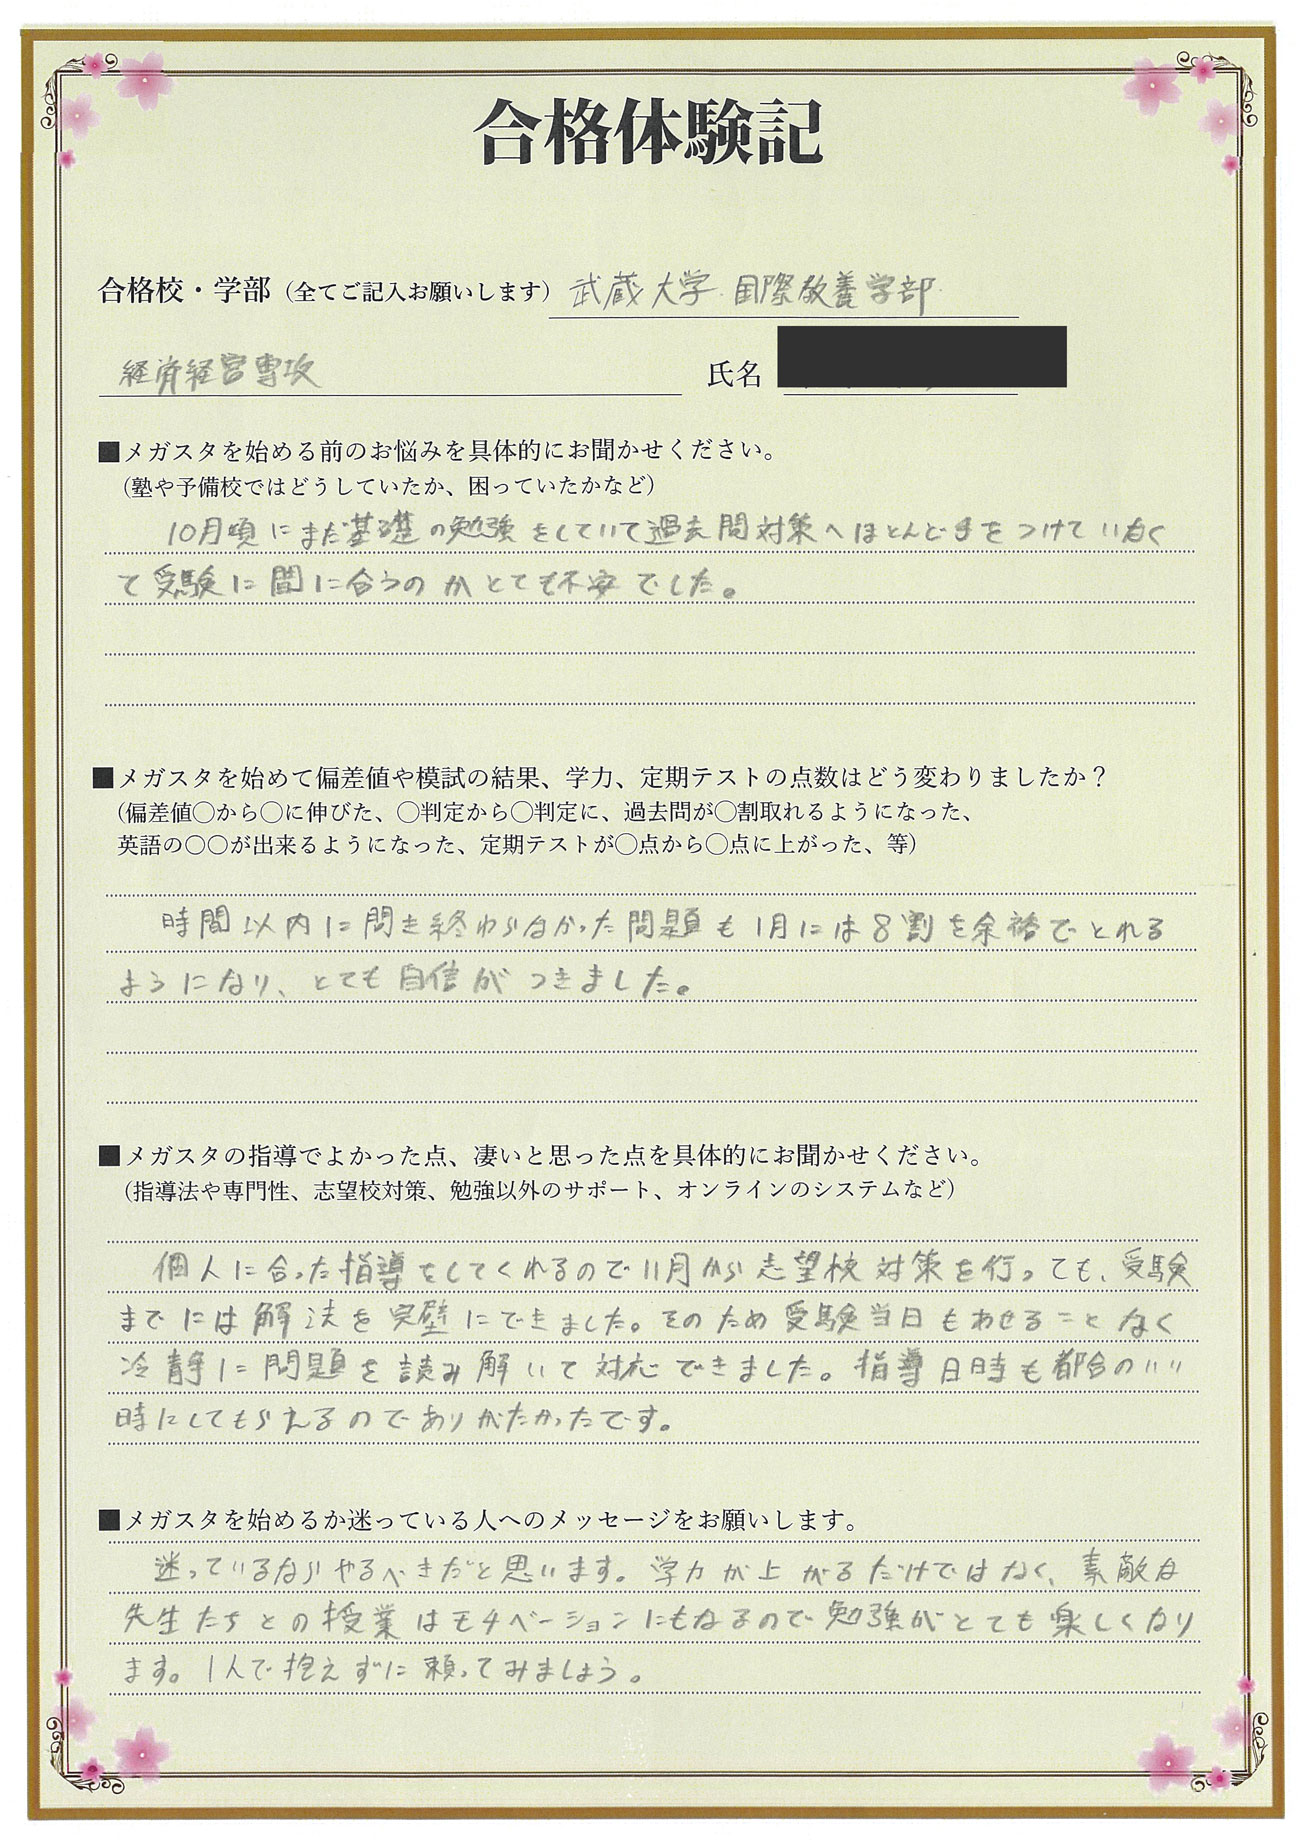 合格体験記
合格校・学部（全てご記入お願いします） 武蔵大学 国際教養学部
経済経営専攻 氏名
■メガスタを始める前のお悩みを具体的にお聞かせください。
（塾や予備校ではどうしていたか、困っていたかなど）
10月頃にまだ基礎の勉強をしていて過去問対策へほとんど手をつけていなく
て受験に間に合うのかとても不安でした。
■メガスタを始めて偏差値や模試の結果、学力、定期テストの点数はどう変わりましたか？
（偏差値〇から〇に伸びた、〇判定から〇判定に、過去問が〇割取れるようになった、
英語の〇〇が出来るようになった、定期テストが〇点から〇点に上がった、等）
時間以内に問き終わらなかった問題も1月には8割を余裕でとれる
ようになり、とても自信がつきました。
■メガスタの指導でよかった点、凄いと思った点を具体的にお聞かせください。
（指導法や専門性、志望校対策、勉強以外のサポート、オンラインのシステムなど）
個人に合った指導をしてくれるので11月から志望校対策を行っても、受験
までには解法を完璧にできました。そのため受験当日もあせることなく
冷静に問題を読み解いて対応できました。指導日時も都合のいい
時にしてもらえるのでありがたかったです。
■メガスタを始めるか迷っている人へのメッセージをお願いします。
迷っているならやるべきだと思います。学力が上がるだけではなく、素敵な
先生たちとの授業はモチベーションにもなるので勉強がとても楽しくなり
ます。1人で抱えずに頼ってみましょう。